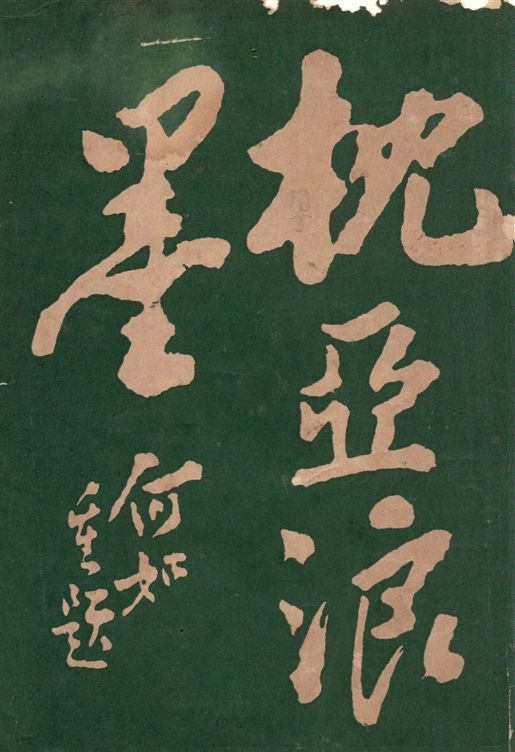 枕亞浪
墨
何如
重題